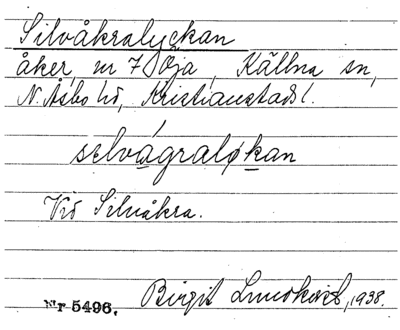 Silvåkralyckan
åker, nr 7 Öja, Källna sn,
N. Åsbo hd, Kristianstads l.
selvágraløkan
Vid Silvåkra.
Nr 5496. Birgit Lundkvist, 1938.